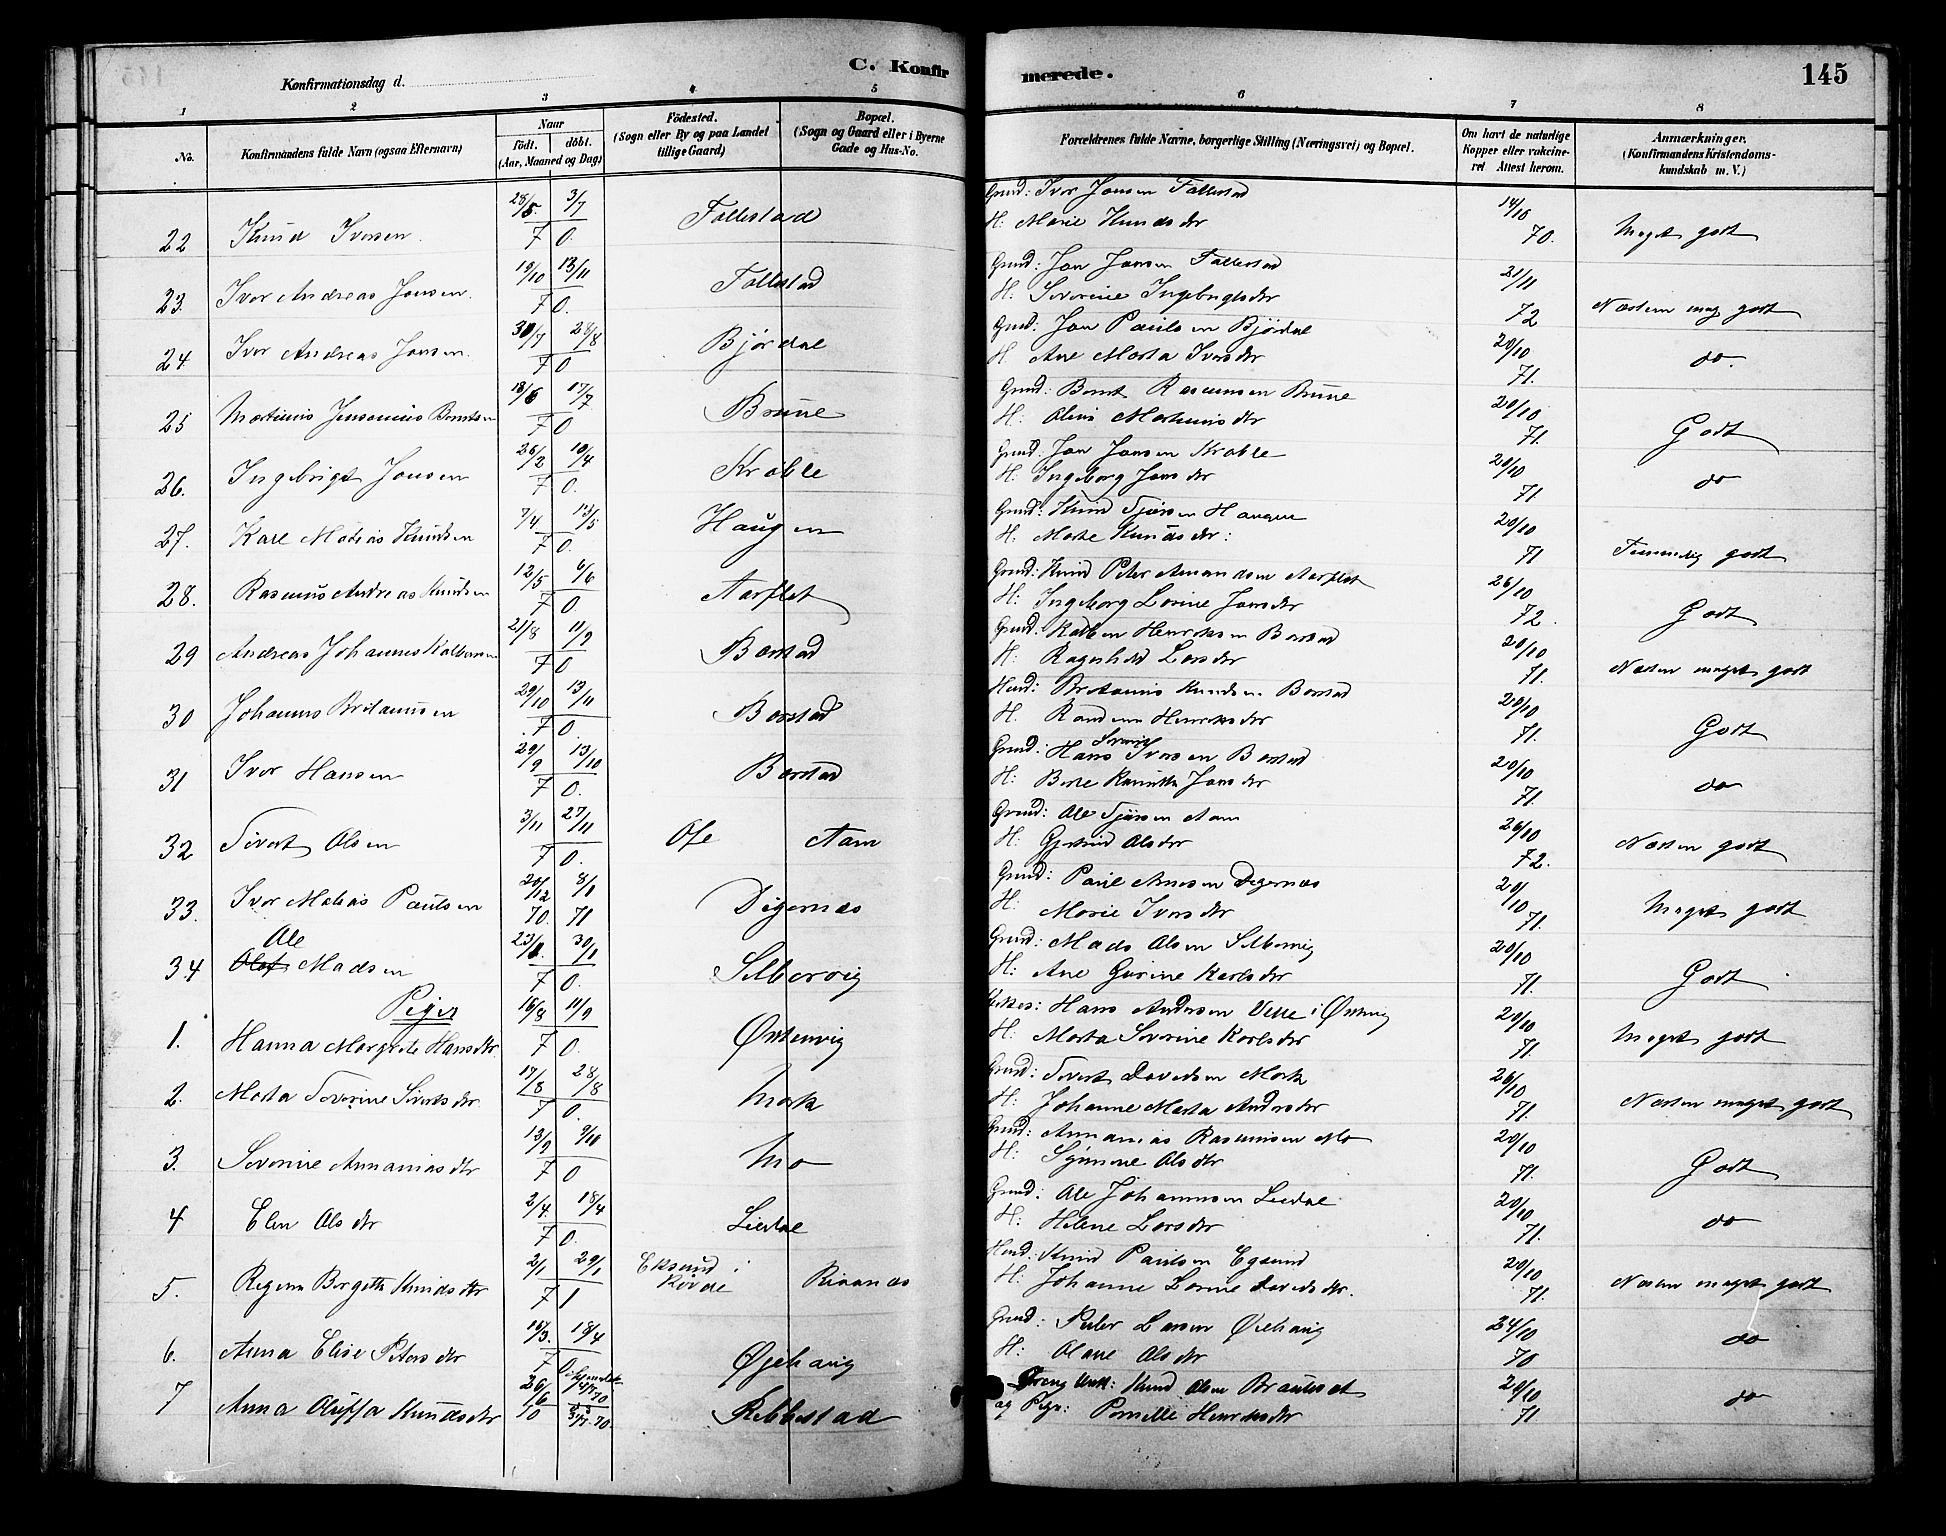 C. Konfirmerede.
145
Konfirmationsdag d.
1 2 3 4 5 6 7 8
No.
Konfirmandens fulde Navn (ogsaa Efternavn)
Naar
født. døbt.
(Aar, Maaned og Dag)
Fødested.
(Sogn eller By og paa Landet
tillige Gaard)
Bopæl.
(Sogn og Gaard eller i Byerne
Gade og Hus-No.
Forældrenes fulde Navne, borgerlige Stilling (Næringsvei) og Bopæl.
Om havt de naturlige
Kopper eller vakcine-
ret Attest herom.
Anmærkninger.
(Konfirmandens Kristendoms-
kundskab m. V.)
22 Knud Iversen 28/5 3/7 70. Follestad Grund: Iver Jonsen Follestad
H: Marie Knudsdtr 14/10 70. Meget godt
23. Iver Andreas Jonsen. 19/10 13/11 70. Follestad Grund: Jon Jonsen Follestad
H: Severine Ingebrigtsdtr 21/11 72 Næsten meg godt
24 Iver Andreas Jonsen. 30/7 28/8 70 Bjørdal Grund: Jon Paulsen Bjørdal
H. Ane Marta Iversdtr 20/10 71. do.
25 Martinus Jensenius Berntsen 18/6 17/7 70 Brune Grund: Bernt Rasmusen Brune
H: Oline Martinusdtr 20/10 71. Godt
26. Ingebrigt Jonsen 26/2 10/4 70. Krøble Grund: Jon Jonsen Krøble
H: Ingeborg Jonsdtr 20/10 71 do
27. Karl Matias Knudsen 7/4 15/5 70. Haugen Grund: Knud Sjursen Haugen
H. Marte Knudsdtr: 20/10 71 Temmelig godt
28. Rasmus Andreas Knudsen 12/5 6/6 70. Aarflot Grund: Knud Peter Amundsen Aarflot
H: Ingeborg Lovine Jonsdtr 26/10 72. Godt
29 Andreas Johannes Kolbensen 21/8 11/9 70 Barstad Grund: Kolben Henriksen Barstad
H: Ragnhild Larsdtr 20/10 71. Næsten meget godt
30 Johannes Britanusen 29/10 13/11 70. Barstad Huud: Britanus Knudsen Barstad
H. Randine Henriksdtr 20/10 71. Godt
31 Iver Hansen 29/9 13/10 70. Barstad Grund: Hans Iversen Barstad
H: Berte Jonsdtr 20/10 71. do
32 Sivert Olsen 3/11 27/11 70. Ose Aam Grund: Ole Sjursen Aam
H: Gjertrud Olsdtr 26/10 72. Næsten godt
33. Iver Matias Paulsen 20/12 70. 8/1 71 Digernæs Grund: Paul Arnesen Digernæs
H: Marie Iversdtr 20/10 71. Meget godt
34 Ole Madsen 23/1 30/1 70. Silbervig Grund: Mads Olsen Silbervig
H: Ane Gurine Karlsdtr 20/10 71. Godt
Piger
1. Hanna Margrete Hansdtr 16/8 11/9 70. Østenvig Hans Andersen Velle i Østenvig
H: Marta Severine Karlsdtr 20/10 71. Meget godt
2. Marta Severine Sivertsdtr 17/8 28/8 70. Mork Grund: Sivert Davidsen Mork
H: Johanne Marta Andersdtr 26/10 71. Næsten meget godt
3. Severine Ananiasdtr 13/9 9/10 70 Mo Grund: Annanias Rasmusen Mo
H: Synnøve Olsdtr 20/10 71. Godt
4 Elen Olsdtr 2/4. 18/4 70. Leirdal Grund: Ole Johannesen Leirdal
H: Helene Larsdtr 20/10 71. do
5. Regina Bergitte Knudsdtr 2/1 29/1 71 Eksund i
Rovde Riaanæs Huud: Knud Paulsen Egsund
H: Johanne Lovine Davidsdtr. 20/10 71. Næsten meget godt
6. Anna Elise Petersdtr 15/3. 18/4 Øjehaug Grund: Peder Larsen Øiehaug
H: Olave Olsdtr 24/10 70 do
7 Anna Oluffa Knudsdtr 26/6 Ribbestad Ung Unk: Knud Olsen Brautset
og Pige: Pernille Henriksdtr 20/10 71 do